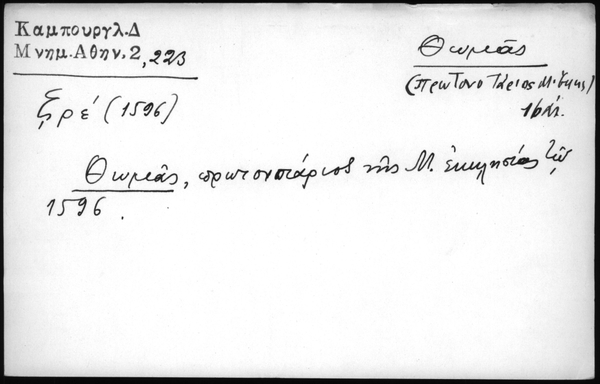 Καμπουργλ.Δ
Μνημ.Αθην.2,223
Θωμᾶς
(πρωτονοτάριος Μ.Ἐκκλ.)
16 αἰ.
(1596)
Θωμᾶς, πρωτονοτάριος τῆς Μ. ἐκκλησίας τῷ
1596.